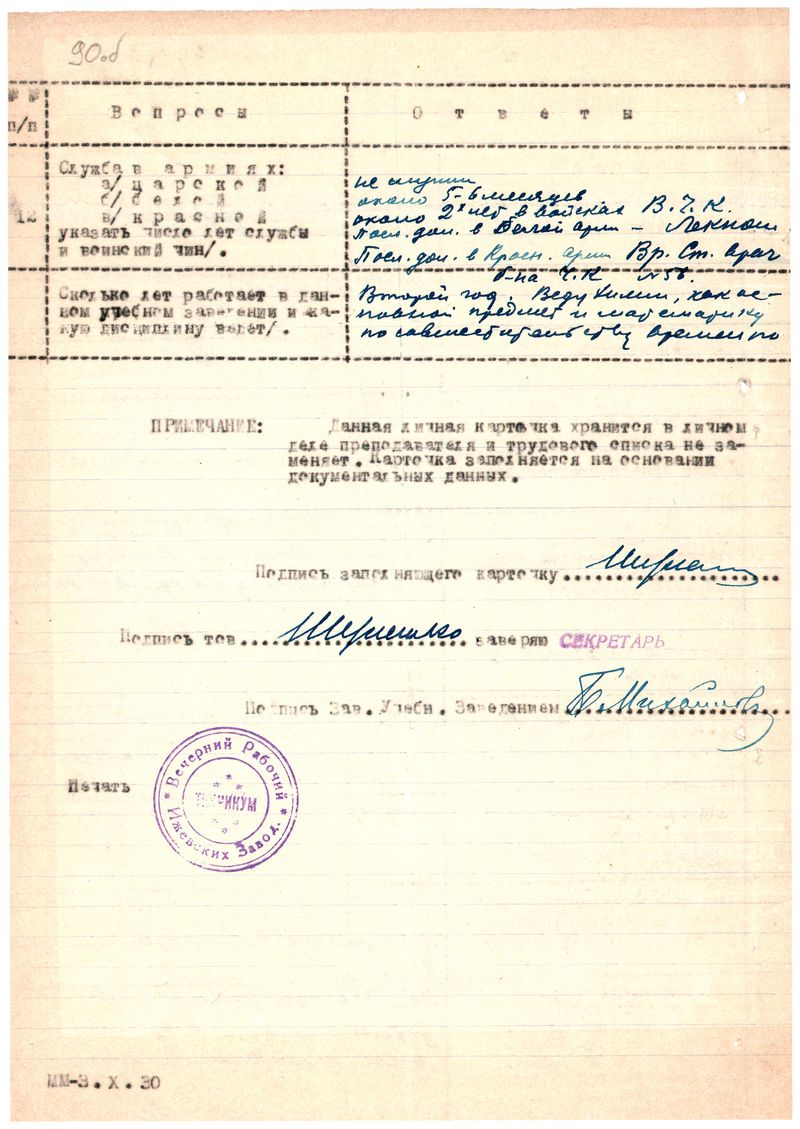 90об
№ №
п/п
Вопросы
Ответы
12
Служба в армиях:
а/ царской
б/ белой
в/ красной
указать число лет службы
и воинский чин/.
не служил
около 5-6 месяцев
около 2х лет в войсках В.Ч.К.
Посл. дол. в Белой арм — Лекпом.
Посл. дол. в Красн. арми Вр. Ст. врач
б-на Ч.К №56.
Сколько лет работает в дан-
ном учебном заведении и ка-
кую дисциплину ведет/.
Второй год. Веду химии, как ос-
новной предмет и математику
по совместительству времен но
ПРИМЕЧАНИЕ: Данная личная карточка хранится в личном
деле преподавателя и трудового списка не за-
меняет. Карточка заполняется на основании
документальных данных.
Подпись заполняющего карточку
Подпись тов. заверяю СЕКРЕТАРЬ
Подпись Зав. Учебн. Заведением Михайлов
Печать
* Вечерний Рабочий *
ТЕХНИКУМ
Ижевских Завод.
ММ-3.X.30